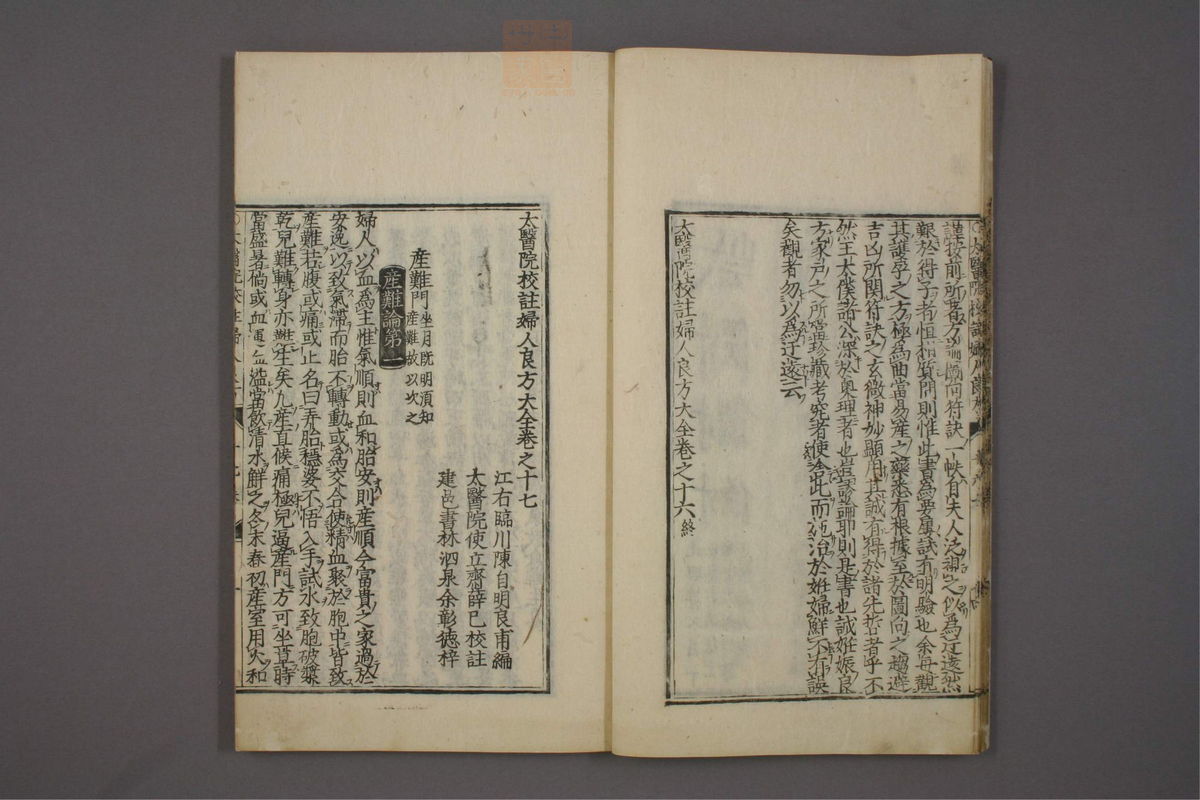 謹按前所著方論圖向符訣一帙自夫人泛視之以為迂遠然
艱於得子者恒指質問則惟此書為要屢試有明驗也余再觀
其護孕之方極為曲當易產之藥悉有根據至於圖向之趨避
吉凶所関符訣之玄微神妙顯用其誠有得於諸先哲者乎不
然王太僕諸公深於奧理者也豈謾論耶則是書也誠姙娠良
方家戶之所當珍藏考究者使舍此而施治於姙婦鮮不有誤
矣觀者勿以為迂遂云
太醫院校註婦人良方大全卷之十六終
太醫院校註婦人良方大全卷之十七
江右臨川陳自明良甫編
太醫院使立齋薛已校註
建邑書林泗泉余彰德梓
產難門
坐月既明須知
產難故以次之
產難論第一
婦人以血為主惟氣順則血和胎安則產順今富貴之家過於
安逸以致氣滯而胎不轉動或為交合使精血聚於胞中皆致
產難若腹或痛或止名曰弄胎穩婆不悟入手試水致胞破漿
乾兒難轉身亦難生矣凡產直候痛極兒逼產門方可坐草時
當盛暑倘或血運血溢當飲清水觧之冬末春初產室用火和